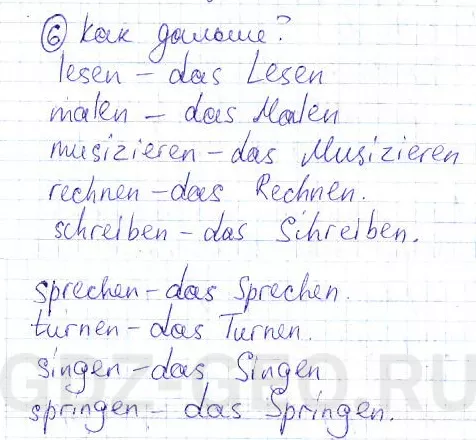 ⑥ Как дальше?
lesen – das Lesen
malen – das Malen
musizieren – das Musizieren
rechnen – das Rechnen.
schreiben – das Schreiben.
sprechen – das Sprechen.
turnen – das Turnen.
singen – das Singen
springen – das Springen.
GDZ-GEO.RU